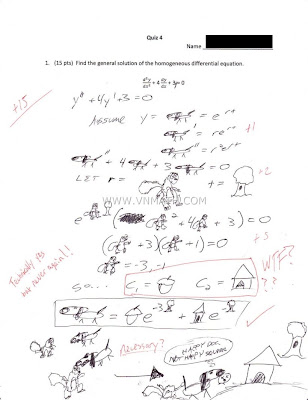 Quiz 4
Name
1. (15 pts) Find the general solution of the homogeneous differential equation.
d²y/dx² + 4 dy/dx + 3y = 0
+15
y" + 4y' + 3 = 0
ASSUME y = = e^rt
' = re^rt
+1
" = r²e^rt
" + 4 ' + 3 = 0
LET r = t =
+2
WWW.VNMATH.COM
e ( ² + 4 + 3) = 0
( +3)( +1) = 0
+5
= -3, -1
SO... C₁ = C₂ =
WTF??
= e^-3 + e
Technically yes
but never again!!
Necessary?
HAPPY DOG
NOT HAPPY SQUIRREL